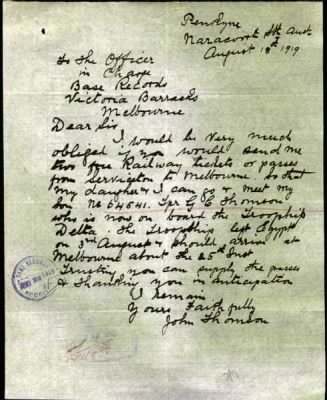 Penryne
Naracoorte Sth Aust
August 18th 1919
To the Officer
in Charge
Base Records
Victoria Barracks
Melbourne
Dear Sir
I would be very much
obliged if you would send me
two free Railway tickets or passes
from Serviceton to Melbourne. So that
my daughter & I can go & meet my
Son No 64641. Tpr G C Thomson
who is now on board the Troopship
Delta. The Troopship left Egypt
on 3rd August & should arrive at
Melbourne about the 25th Inst
Trusting you can supply the passes
& Thanking you in anticipation
I remain
Yours Faithfully
John Thomson